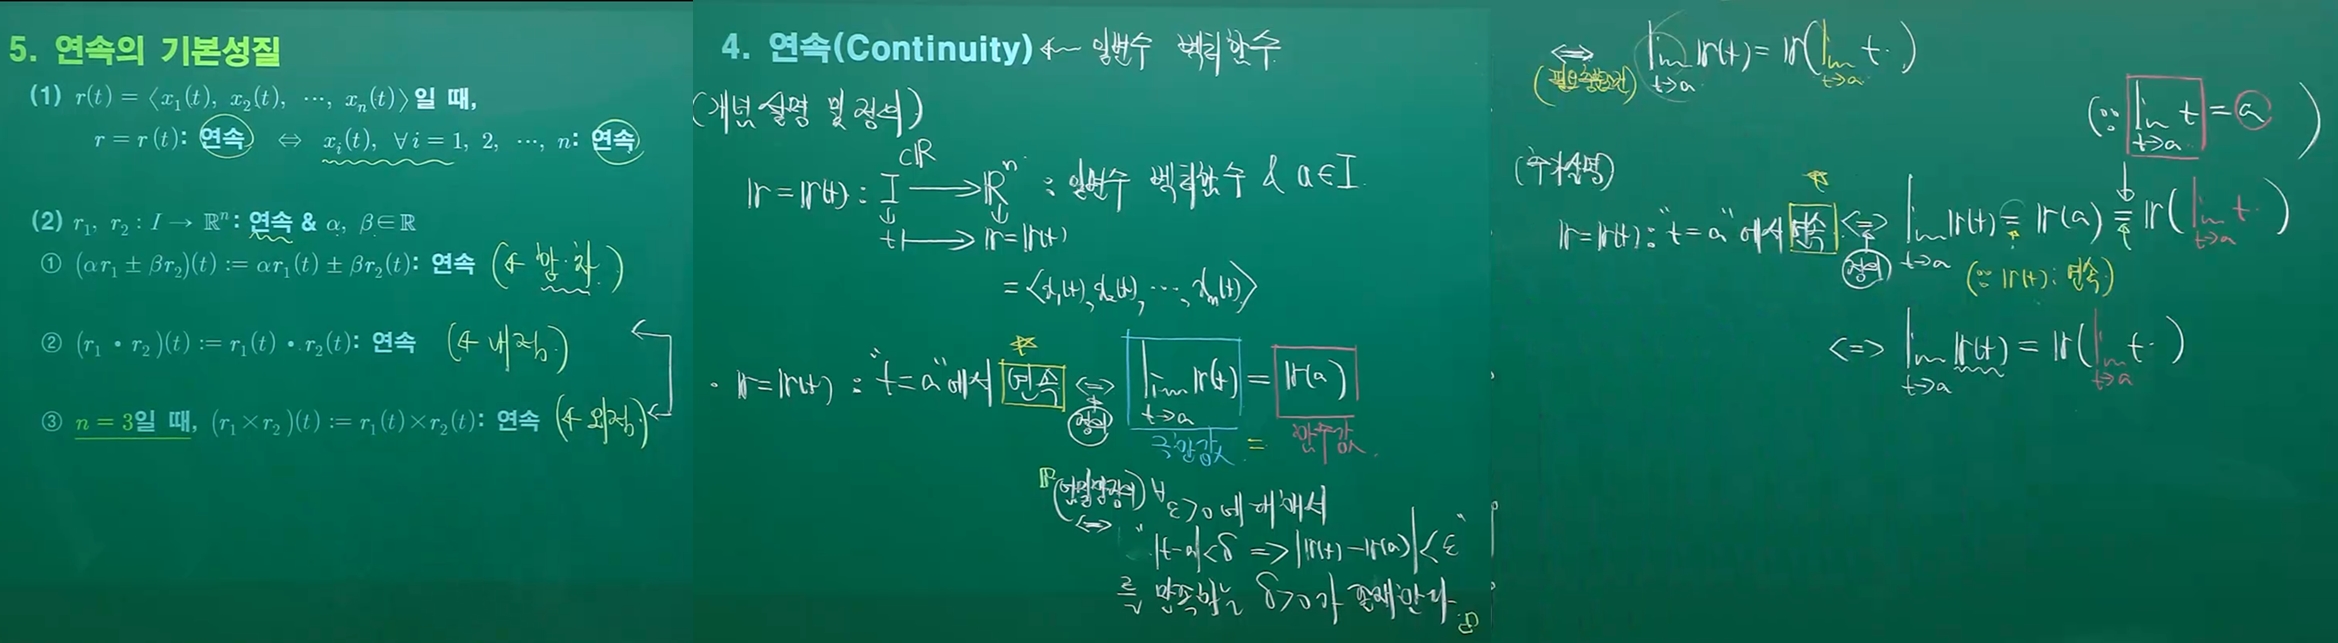 5. 연속의 기본성질
(1) r(t) = ⟨x₁(t), x₂(t), ⋯, xₙ(t)⟩일 때,
r = r(t): 연속 ⇔ xᵢ(t), ∀i = 1, 2, ⋯, n: 연속
(2) r₁, r₂ : I → ℝⁿ: 연속 & α, β∈ℝ
① (αr₁ ± βr₂)(t) := αr₁(t) ± βr₂(t): 연속 (← 합·차)
② (r₁ • r₂)(t) := r₁(t) • r₂(t): 연속 (← 내적)
③ n = 3일 때, (r₁×r₂)(t) := r₁(t)×r₂(t): 연속 (← 외적)
4. 연속(Continuity) ← 일변수 벡터함수
(개념 설명 및 정의)
⊂ℝ
𝕣 = 𝕣(t) : I → ℝⁿ : 일변수 벡터함수 & a∈I
t ↦ 𝕣 = 𝕣(t)
= ⟨x₁(t), x₂(t), ⋯, xₙ(t)⟩
· 𝕣 = 𝕣(t) : "t = a"에서 연속 ⇔ lim 𝕣(t) = 𝕣(a)
정의 t→a
극한값 = 함수값
(엄밀한정의) ∀ε>0에 대해서
⇔ "|t-a|<δ ⇒ |𝕣(t)-𝕣(a)|<ε"
를 만족하는 δ>0가 존재한다.
⇔ lim 𝕣(t) = 𝕣(lim t)
(필요충분조건) t→a t→a
(∵ lim t = a)
t→a
(추가설명)
𝕣 = 𝕣(t) : "t = a"에서 연속 ⇔ lim 𝕣(t) = 𝕣(a) = 𝕣(lim t)
정의 t→a t→a
(∵ 𝕣(t) : 연속)
⇔ lim 𝕣(t) = 𝕣(lim t)
t→a t→a